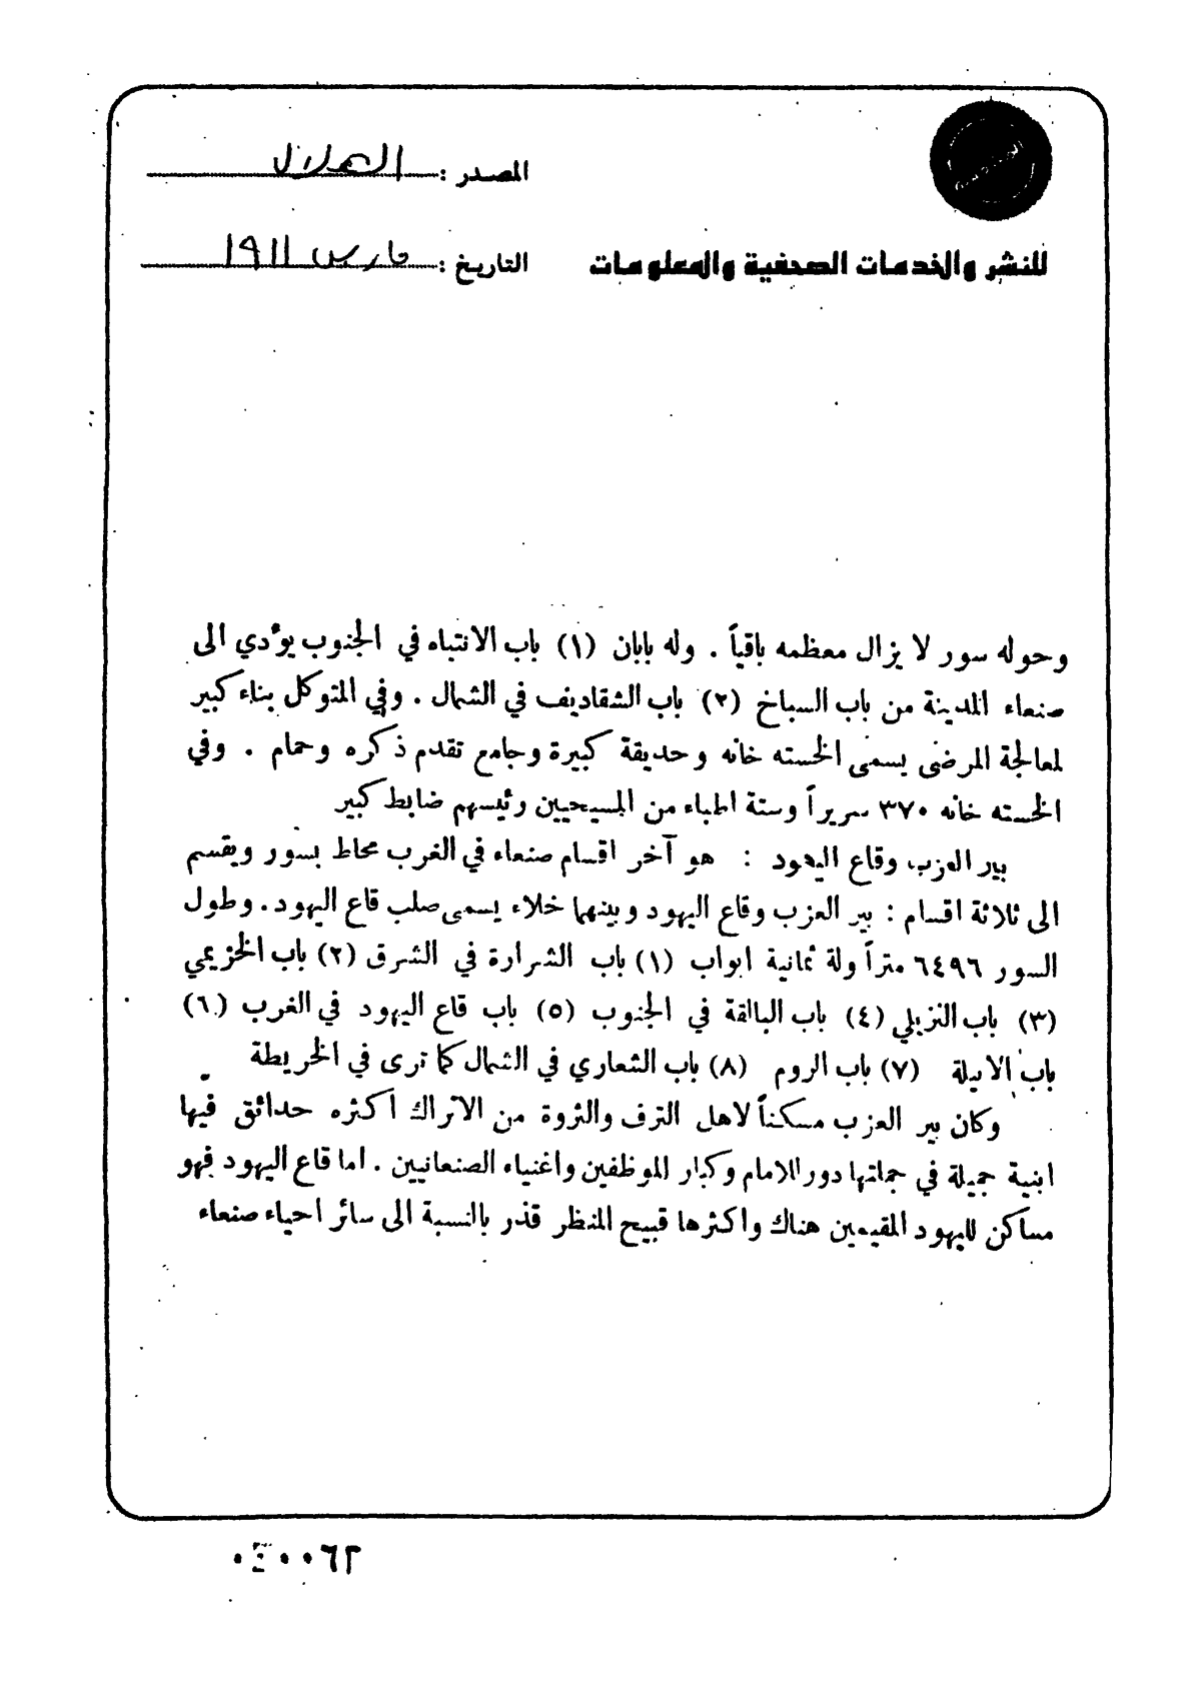 المصدر : الهلال
للنشر والخدمات الصحفية والمعلومات
التاريخ : مارس ١٩١١
وحوله سور لا يزال معظمه باقياً . وله بابان (١) باب الانتباه في الجنوب يؤدي الى
صنعاء المدينة من باب السباخ (٢) باب الشقاديف في الشمال . وفي المتوكل بناء كبير
لمعالجة المرضى يسمى الخسته خانه وحديقة كبيرة وجامع تقدم ذكره وحمام . وفي
الخسته خانه ٣٧٠ سريراً وستة اطباء من المسيحيين رئيسهم ضابط كبير
بير العزب وقاع اليهود : هو آخر اقسام صنعاء في الغرب محاط بسور ويقسم
الى ثلاثة اقسام : بير العزب وقاع اليهود وبينهما خلاء يسمى صلب قاع اليهود . وطول
السور ٦٤٩٦ متراً ولة ثمانية ابواب (١) باب الشرارة في الشرق (٢) باب الخزيمي
(٣) باب النزيلي (٤) باب البالقة في الجنوب (٥) باب قاع اليهود في الغرب (٦)
باب الابيلة (٧) باب الروم (٨) باب الشعاري في الشمال كما ترى في الخريطة
وكان بير العزب مسكناً لاهل الترف والثروة من الاتراك اكثره حدائق فيها
ابنية جميلة في جملتها دور للامام وكبار الموظفين واغنياء الصنعانيين . اما قاع اليهود فهو
مساكن لليهود المقيمين هناك واكثرها قبيح المنظر قذر بالنسبة الى سائر احياء صنعاء